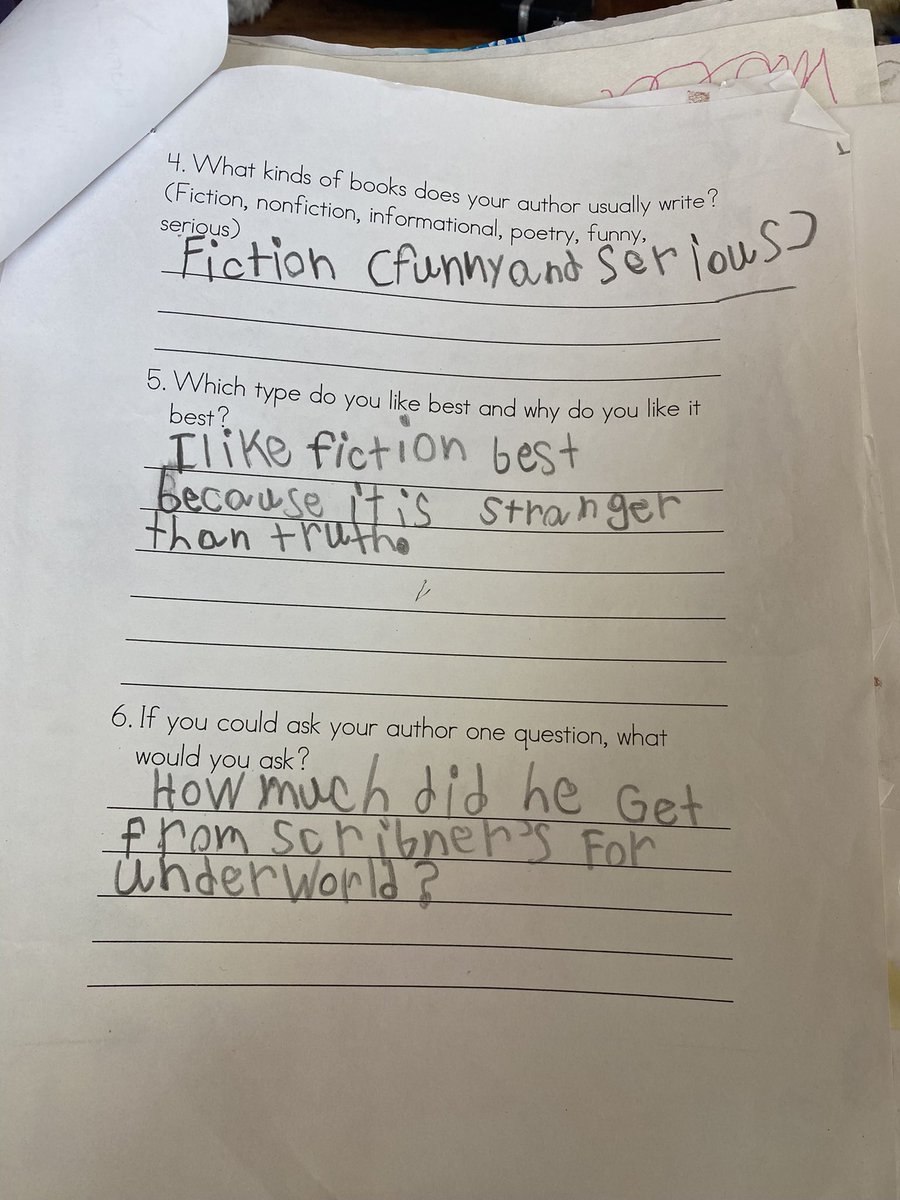 4. What kinds of books does your author usually write?
(Fiction, nonfiction, informational, poetry, funny,
serious)
Fiction (funny and serious)
5. Which type do you like best and why do you like it
best?
I like fiction best
because it is stranger
than truth.
6. If you could ask your author one question, what
would you ask?
How much did he Get
from scribner's For
underworld?